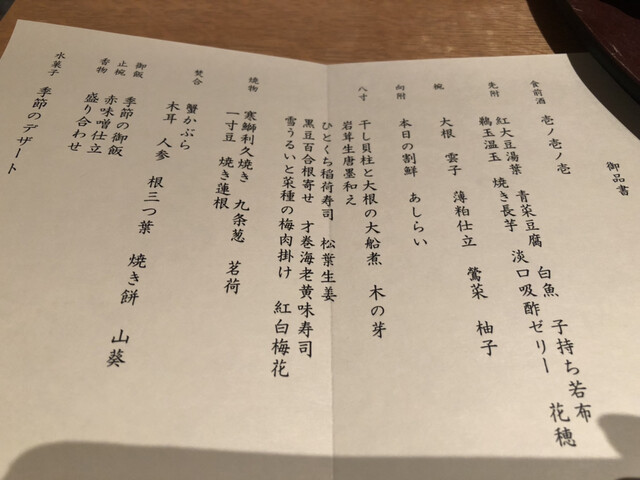 御品書
食前酒 壱ノ壱ノ壱
先附 紅大豆湯葉 青菜豆腐 白魚 子持ち若布
鶉玉温玉 焼き長芋 淡口吸酢ゼリー 花穂
椀 大根 雲子 薄粕仕立 鶯菜 柚子
向附 本日の割鮮 あしらい
八寸 干し貝柱と大根の大船煮 木の芽
岩茸生唐墨和え
ひとくち稲荷寿司 松葉生姜
黒豆百合根寄せ 才巻海老黄味寿司
雪うるいと菜種の梅肉掛け 紅白梅花
焼物 寒鰤利久焼き 九条葱 茗荷
一寸豆 焼き蓮根
焚合 蟹かぶら
木耳 人参 根三つ葉 焼き餅 山葵
御飯 季節の御飯
止椀 赤味噌仕立
香物 盛り合わせ
水菓子 季節のデザート